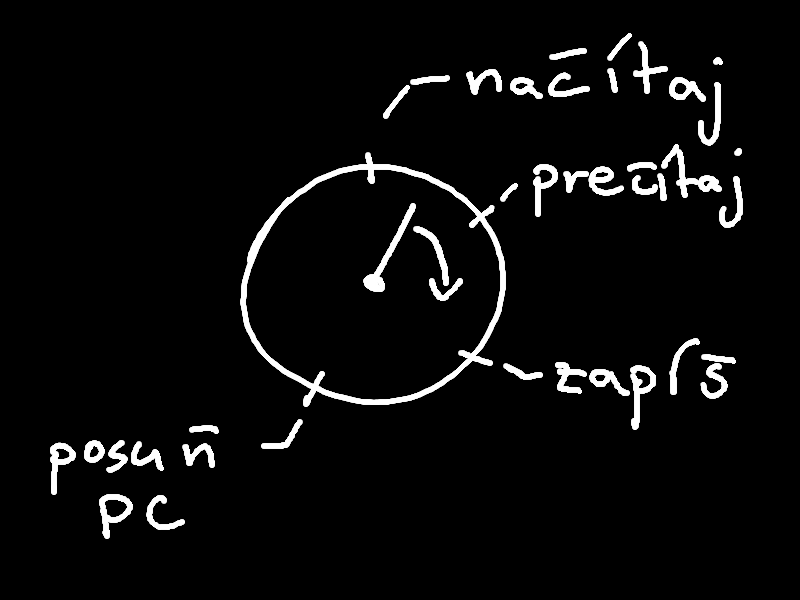 načítaj
prečítaj
zapíš
posuň
PC